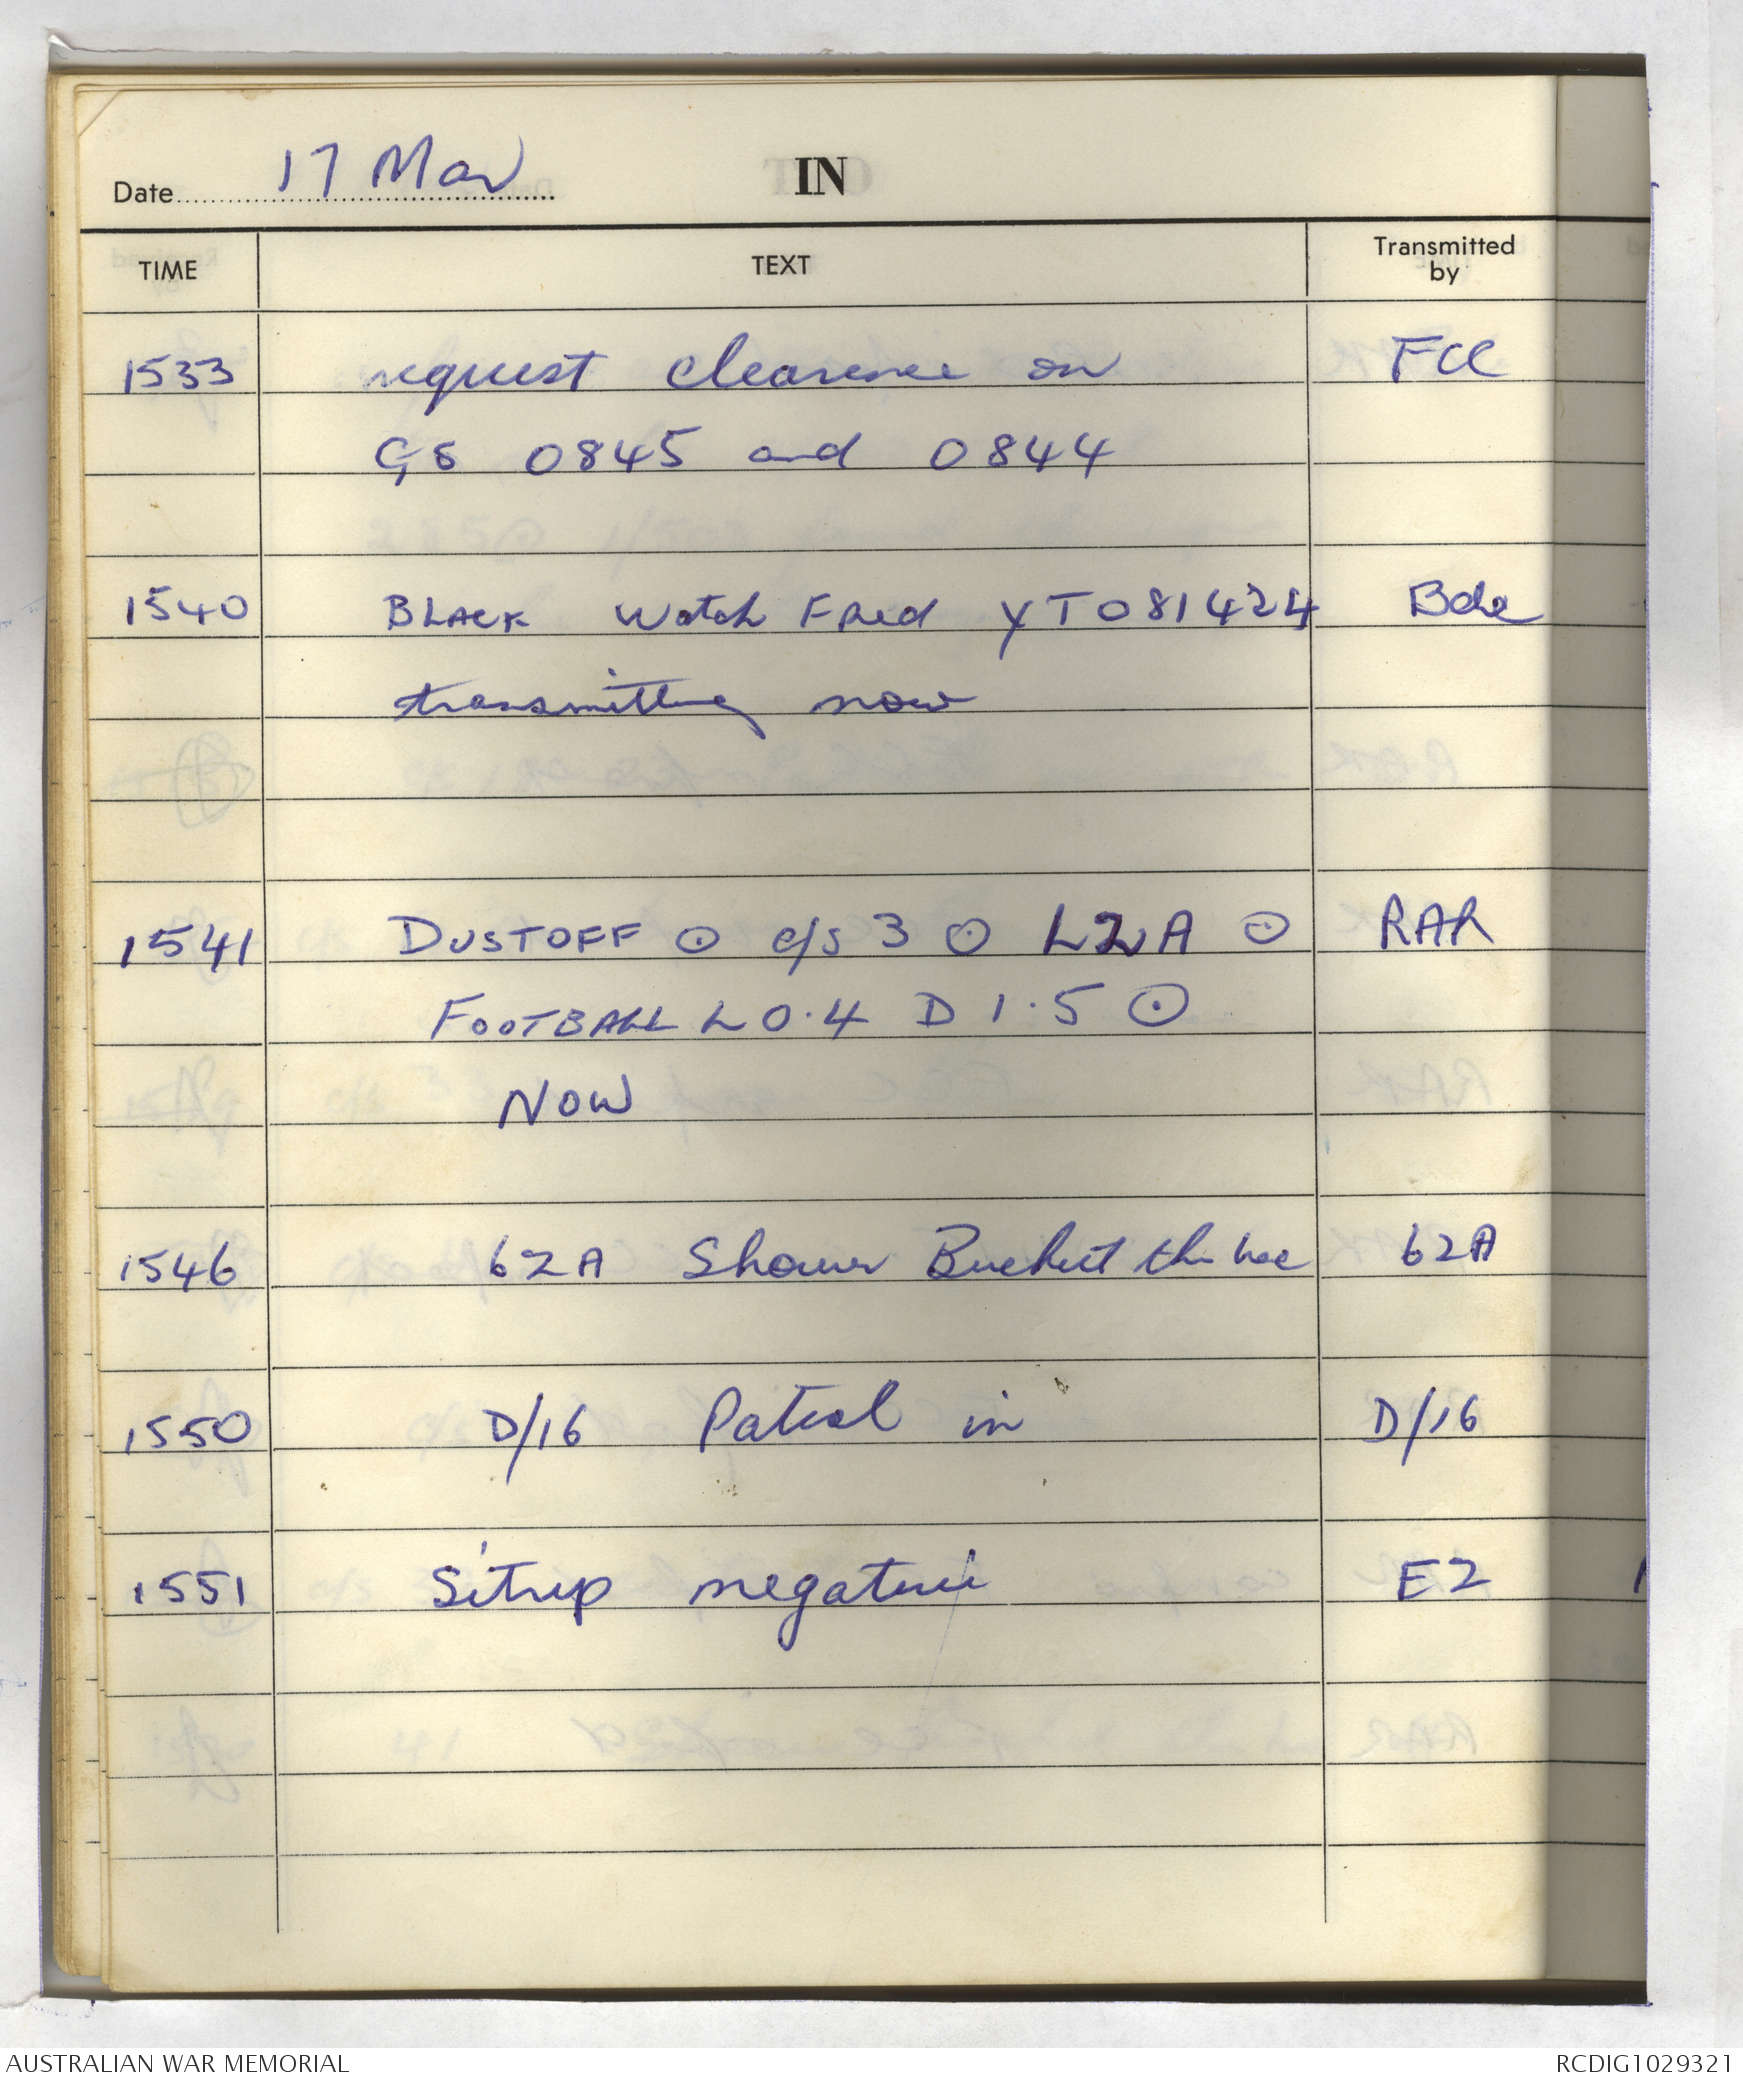 Date 17 Mar
IN
TIME TEXT Transmitted by
1533 request clearence on FCC
GS 0845 and 0844
1540 BLACK Watch FRed YT081424 Bde
transmitting now
1541 DUSTOFF ⊙ c/s 3 ⊙ L2A ⊙ RAR
FOOTBALL L 0.4 D 1.5 ⊙
NOW
1546 62A Shower Bucket this loc 62A
1550 D/16 Patrol in D/16
1551 Sitrep negative E2
AUSTRALIAN WAR MEMORIAL RCDIG1029321